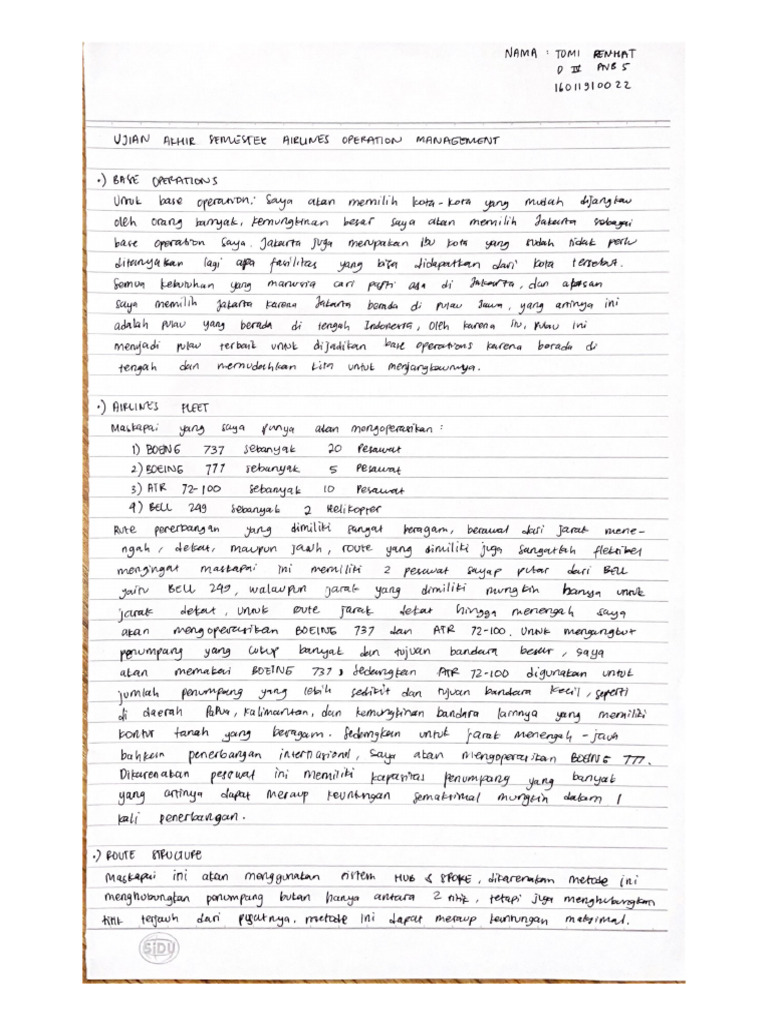 NAMA : TOMI RENHAT
D IV PNB 5
16011910022
UJIAN AKHIR SEMESTER AIRLINES OPERATION MANAGEMENT
•) BASE OPERATIONS
Untuk base operation, saya akan memilih kota-kota yang mudah dijangkau
oleh orang banyak, kemungkinan besar saya akan memilih Jakarta sebagai
base operation saya. Jakarta juga merupakan ibu kota yang sudah tidak perlu
ditanyakan lagi apa fasilitas yang bisa didapatkan dari kota tersebut.
Semua kebutuhan yang manusia cari pasti ada di Jakarta, dan alasan
saya memilih Jakarta karena Jakarta berada di pulau Jawa, yang artinya ini
adalah pulau yang berada di tengah Indonesia, oleh karena itu, pulau ini
menjadi pulau terbaik untuk dijadikan base operations karena berada di
tengah dan memudahkan kita untuk menjangkaunya.
•) AIRLINES FLEET
Maskapai yang saya punya akan mengoperasikan :
1) BOEING 737 sebanyak 20 Pesawat
2) BOEING 777 sebanyak 5 Pesawat
3) ATR 72-100 sebanyak 10 Pesawat
4) BELL 249 sebanyak 2 Helikopter
Rute penerbangan yang dimiliki sangat beragam, berawal dari jarak mene-
ngah, dekat, maupun jauh, route yang dimiliki juga sangatlah fleksibel
mengingat maskapai ini memiliki 2 pesawat sayap putar dari BELL
yaitu BELL 249, walaupun jarak yang dimiliki mungkin hanya untuk
jarak dekat, untuk route jarak dekat hingga menengah saya
akan mengoperasikan BOEING 737 dan ATR 72-100. Untuk mengangkut
penumpang yang cukup banyak dan tujuan bandara besar, saya
akan memakai BOEING 737, sedangkan ATR 72-100 digunakan untuk
jumlah penumpang yang lebih sedikit dan tujuan bandara kecil, seperti
di daerah Papua, Kalimantan, dan kemungkinan bandara lainnya yang memiliki
kontur tanah yang beragam. Sedangkan untuk jarak menengah - jauh
bahkan penerbangan internasional, saya akan mengoperasikan BOEING 777.
Dikarenakan pesawat ini memiliki kapasitas penumpang yang banyak
yang artinya dapat meraup keuntungan semaksimal mungkin dalam 1
kali penerbangan.
•) ROUTE STRUCTURE
Maskapai ini akan menggunakan sistem HUB & SPOKE, dikarenakan metode ini
menghubungkan penumpang bukan hanya antara 2 titik, tetapi juga menghubungkan
titik terjauh dari pusatnya. metode ini dapat meraup keuntungan maksimal.
SIDU